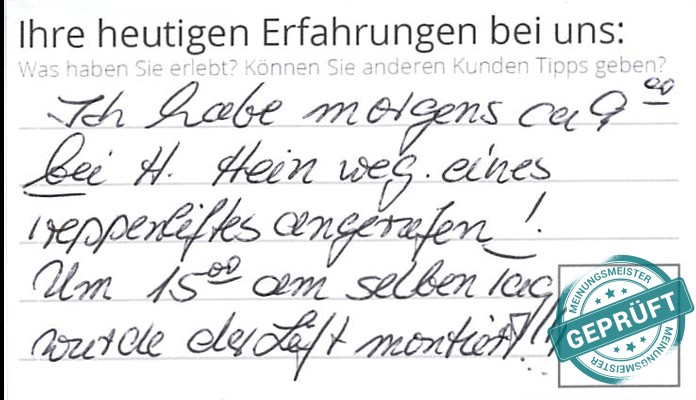 Ihre heutigen Erfahrungen bei uns:
Was haben Sie erlebt? Können Sie anderen Kunden Tipps geben?
Ich habe morgens ca 9 00
bei H. Hein weg. eines
Treppenliftes angerufen!
Um 15 00 am selben Tag
wurde der Lift montiert!!
MEINUNGSMEISTER
GEPRÜFT
MEINUNGSMEISTER